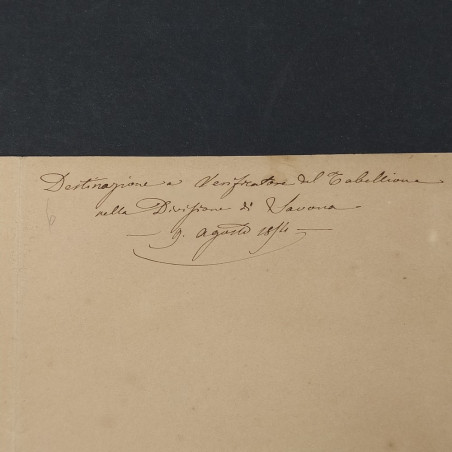 Destinazione a Verificatore del Tabellione
nella Divisione di Savona
9. Agosto